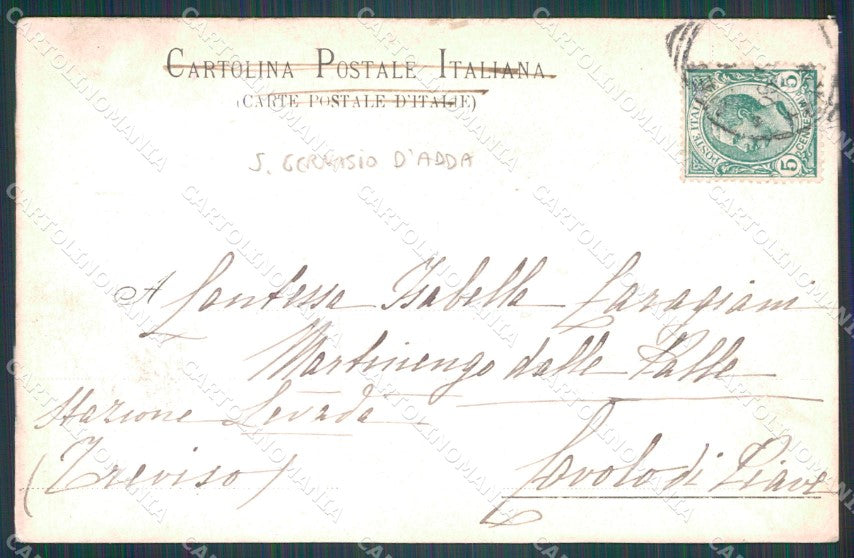 CARTOLINA POSTALE ITALIANA
(CARTE POSTALE D'ITALIE)
S. GERVASIO D'ADDA
POSTE ITALIANE
5 CENTES. 5
A Contessa Isabella Caragiani
Martinengo dalle Palle
Stazione Levada
(Treviso)
Covolo di Piave
CARTOLINOMANIA